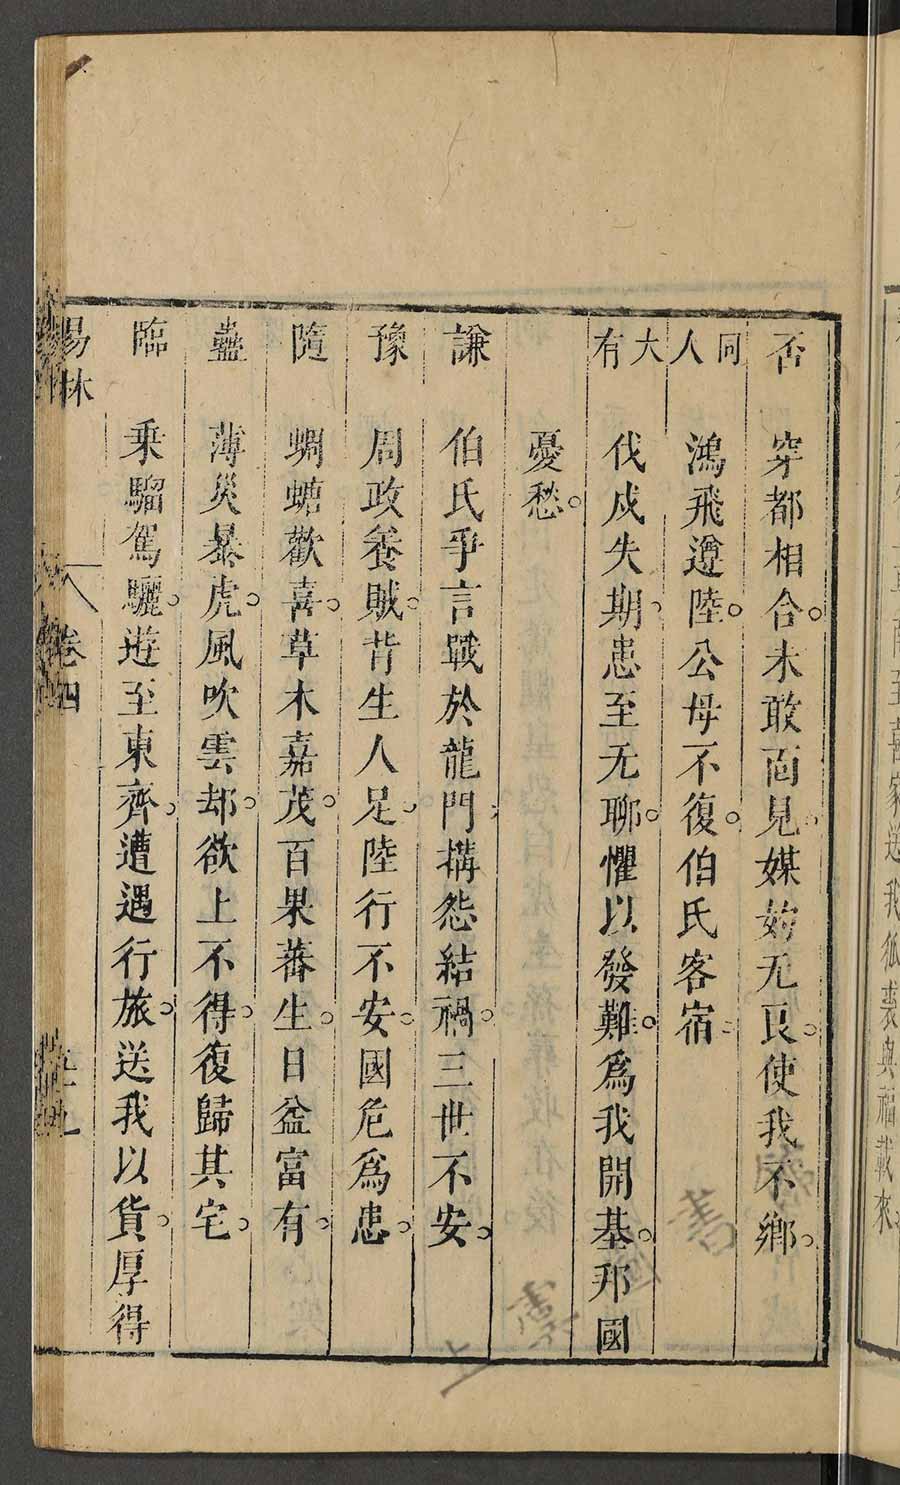 否　穿都相合未敢面見媒妁无良使我不鄉
同人　鴻飛遵陸公母不復伯氏客宿
大有　伐戍失期患至无聊懼以發難爲我開基邦國
憂愁
謙　伯氏爭言戰於龍門構怨結禍三世不安
豫　周政養賊背生人足陸行不安國危爲患
隨　蜩螗歡喜草木嘉茂百果蕃生日益富有
蠱　薄災暴虎風吹雲却欲上不得復歸其宅
臨　乗騮駕驪遊至東齊遭遇行旅送我以貨厚得
易林　卷四
我狐裘與福載來